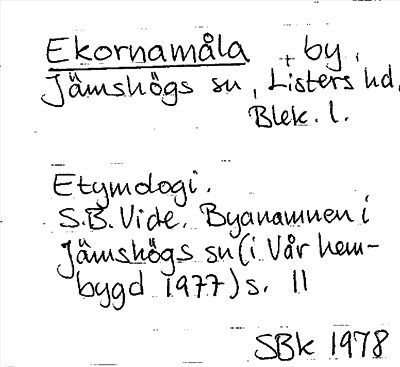 Ekornamåla, by,
Jämshögs sn, Listers hd,
Blek. l.
Etymologi.
S.B. Vide. Byanamnen i
Jämshögs sn (i Vår hem-
bygd 1977) s. 11
SBk 1978